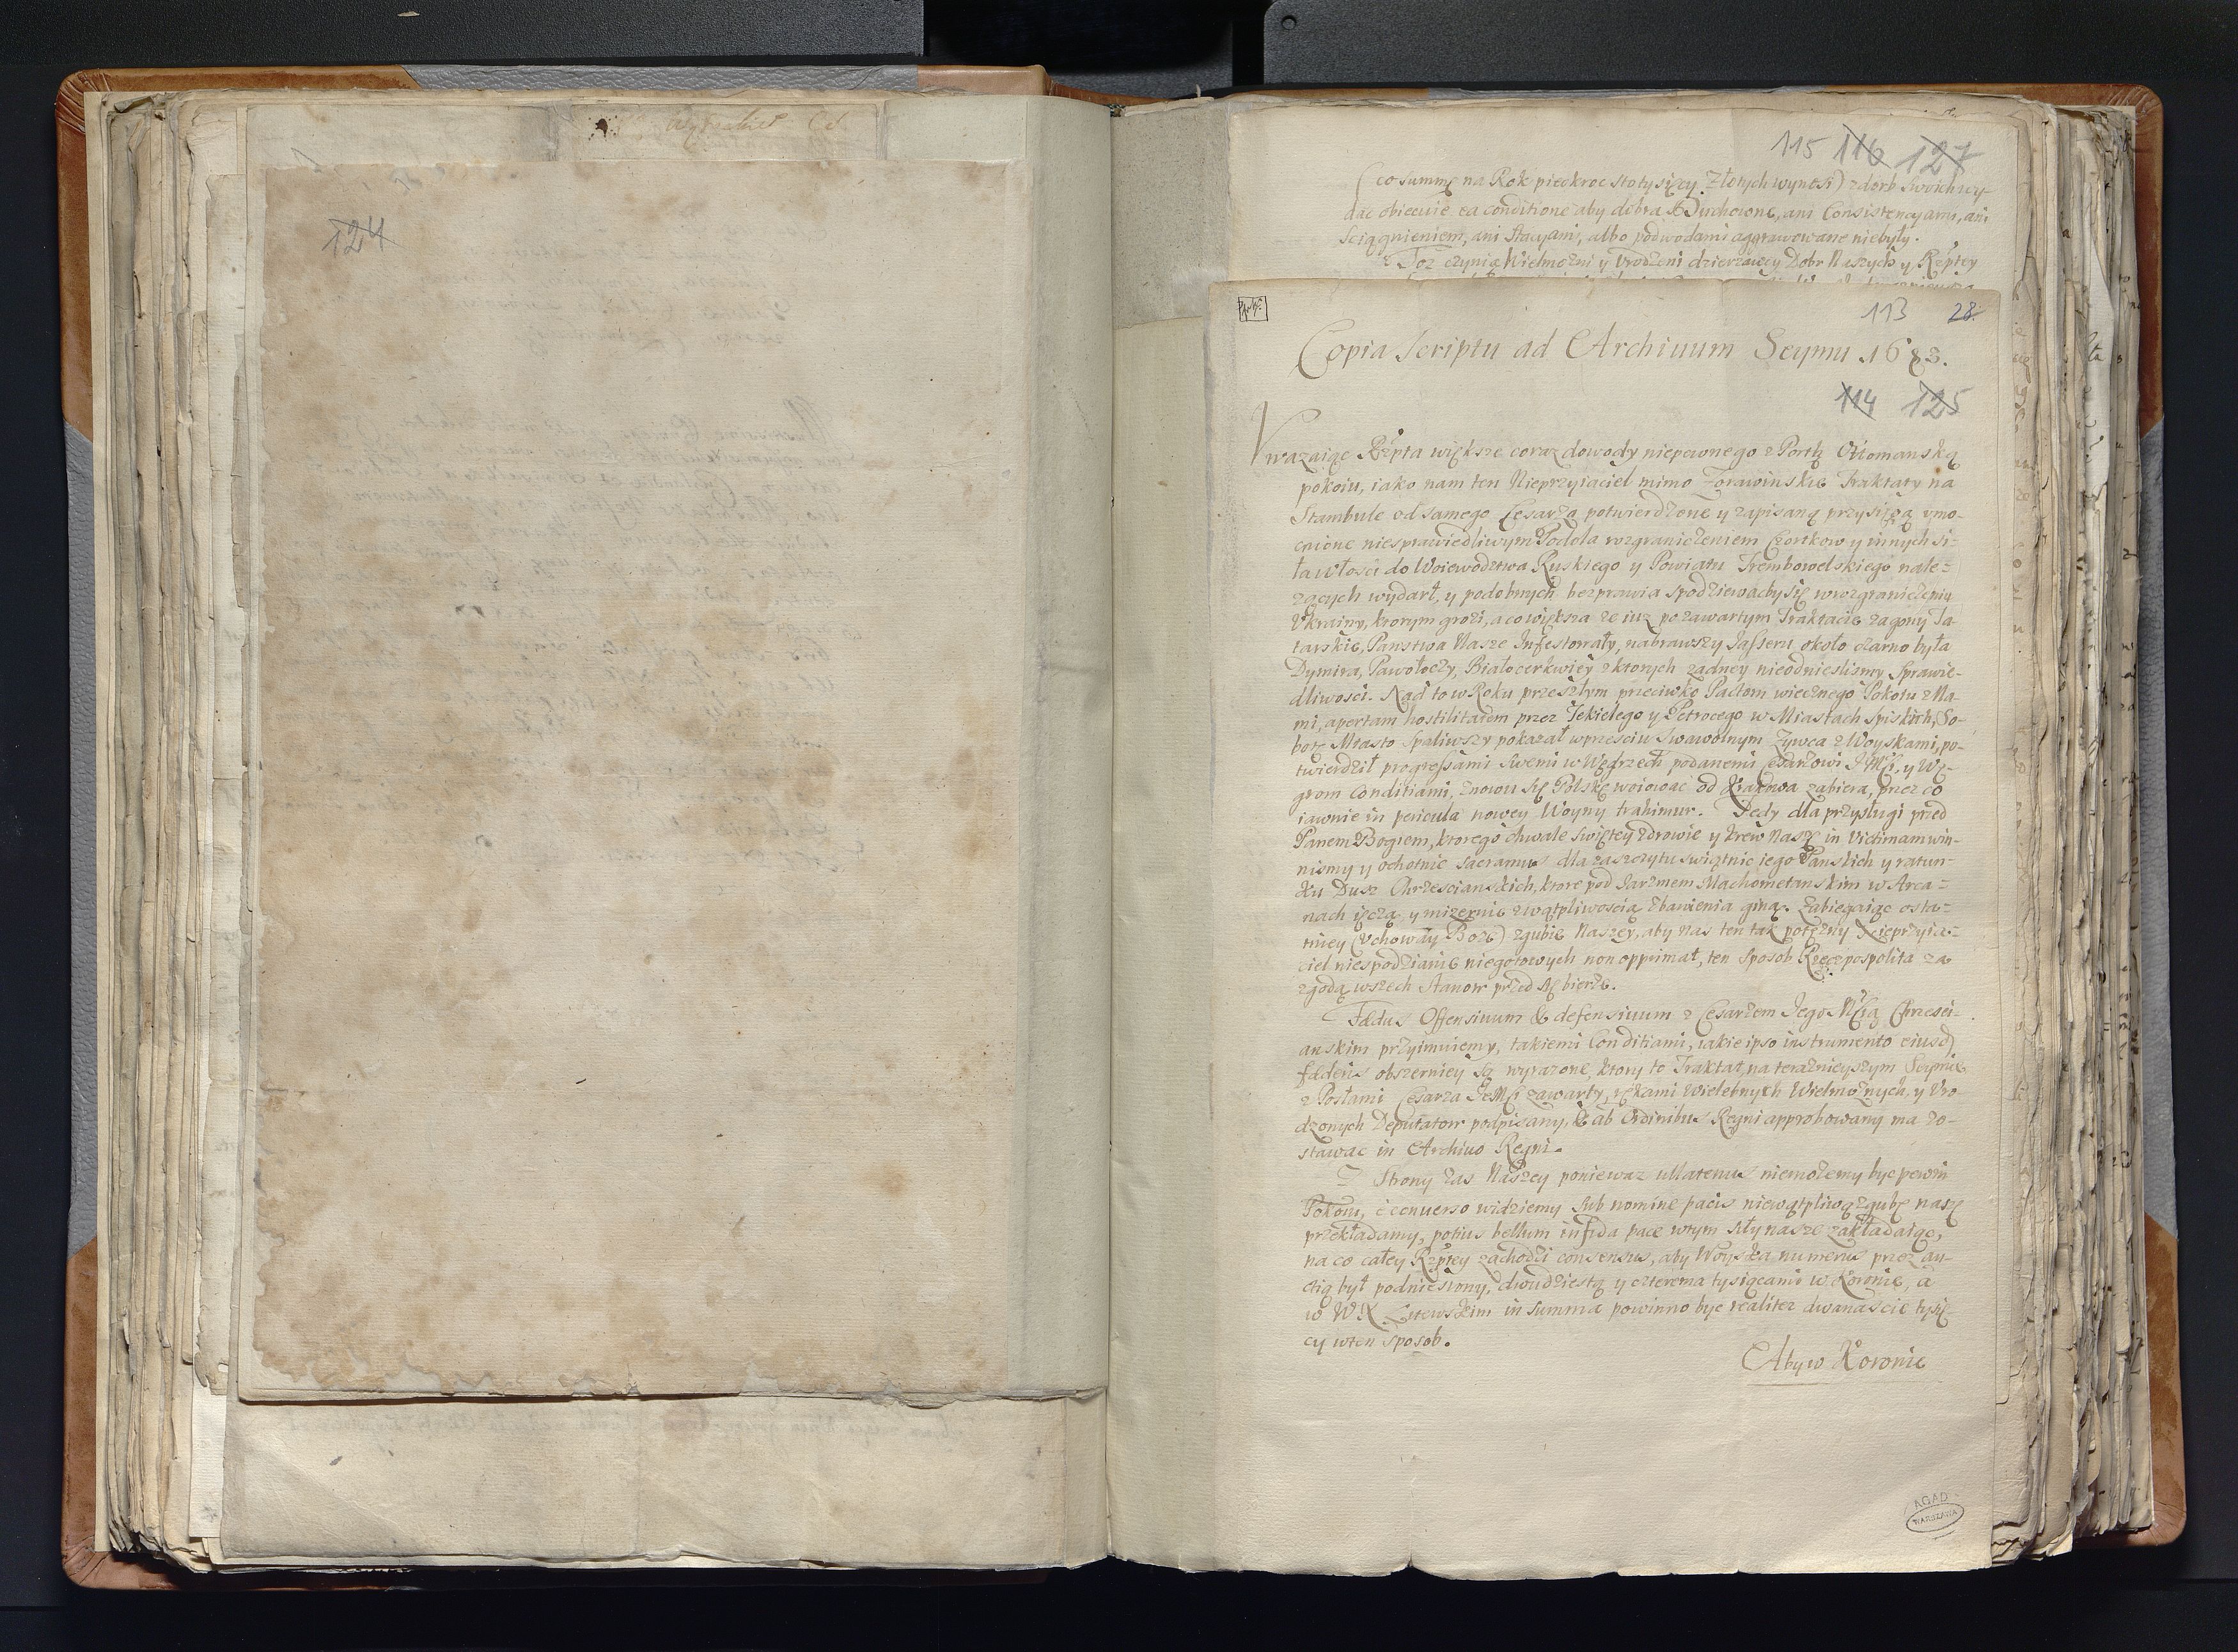 124
115 116 127
(co summę na Rok piećkroc stotysięcy Złotych wynosi) zdobr swoich wy-
dac obiecuie ea conditione aby dobra Duchowne, ani Consistencyami, ani
Sciągnieniem, ani Stacyami, albo podwodami aggrawowane niebyły.
Toz czynią Wielmożni y Vrodzeni dzierzawcy Dobr Naszych y Rzptey
113 28
Copia Scriptu ad Archiuum Seymu 1683.
114 125
Vwazaiąc Rzpta większe coraz dowody niepewnego z Portą Ottomanską
pokoiu, iako nam ten Nieprzyiaciel mimo Zorawinskie Traktaty na
Stambule od samego Cesarza potwierdzone y zapisaną przysięgą vmo-
cnione niesprawiedliwym Podola rozgraniczeniem Czortkow y innych si-
ła włosci do Woiewodztwa Ruskiego y Powiatu Trembowelskiego nale=
zących wydarł, y podobnych bezprawia spodziewacby się wrozgraniczeniu
Vkrainy, ktorym grozi, a co większa ze iuz po zawartym Traktacie zagony Ta-
tarskie, Panstwa Nasze Infestowały, nabrawszy Jassern około Czarnobyla
Dymira, Pawołoczy, Białocerkwiey z ktorych zadney nieodnieslismy Sprawie-
dliwosci. Nad to w Roku przeszłym przeciwko Pactom wiecznego Pokoiu z Na-
mi, apertam hostilitatem przez Tekielego y Petrocego w Miastach Spiskich, So-
botę Miasto spaliwszy pokazał w przesciu swawolnym Zywca z Woyskami, po-
twierdził progressami swemi w Węgrzech podanemi Cesarzowi JMći, y Wę-
grom Conditiami, znowu się Polskę woiowac od Krakowa zabiera, przez co
iawnie in pericula nowey Woyny trahimur. Tedy dla przysługi przed
Panem Bogiem, ktorego chwale swiętey zdrowie y krew naszę in Victimam win-
nismy y ochotnie sacramus dla zaszczytu swiątnic iego Panskich y ratun-
ku Dusz Chrzescianskich, ktore pod Jarzmem Machometanskim w Arca=
nach ięczą y mizernie z wątpliwoscią zbawienia giną. Zabiegaiąc osta=
tniey (Vchoway Boze) zgubie Naszey, aby nas ten tak potęzny Nieprzyia=
ciel niespodzianie niegotowych non opprimat, ten sposob Rzeczpospolita za
zgodą wszech Stanow przed się bierze.
Fædus Offensiuum & defensiuum z Cesarzem Jego Mćią Chrzesci-
anskim przyimuiemy, takiemi Conditiami, iakie ipso instrumento eiusd
fæderis obszerniey są wyrazone, ktory to Traktat, na teraznieyszym Seymie
z Posłami Cesarza JeMći zawarty, rękami Wielebnych Wielmoznych, y Vro-
dzonych Deputatow podpisany, & ab Ordinibus Regni approbowany ma zo-
stawac in Archiuo Regni.
Z Strony zas Naszey poniewaz ullatenus niemozemy byc pewni
Pokoiu, è conuerso widziemy sub nomine pacis niewątpliwą zgubę naszę
przekładamy, potius bellum infida pace wtym siły nasze zakładaiąc,
na co całey Rzptey zachodzi consensus, aby Woyska numerus przez au-
ctią był podniesiony, dwudziestą y czterema tysiącami w Koronie, a
w W.X. Litewskim in summa powinno byc realiter dwanascie tysię
cy wten sposob.
Aby w Koronie
AGAD
WARSZAWA